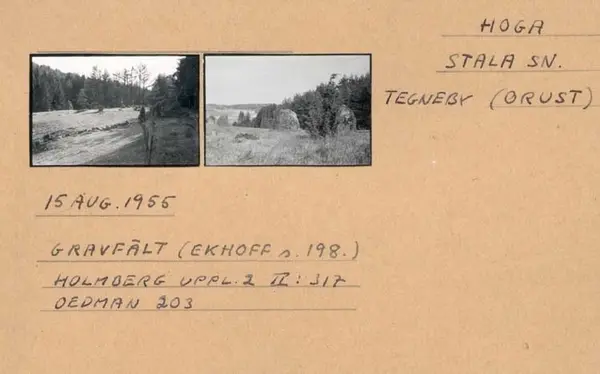 HOGA
STALA SN.
TEGNEBY (ORUST)
15 AUG. 1955
GRAVFÄLT (EKHOFF s. 198.)
HOLMBERG UPPL. 2 II: 317
OEDMAN 203